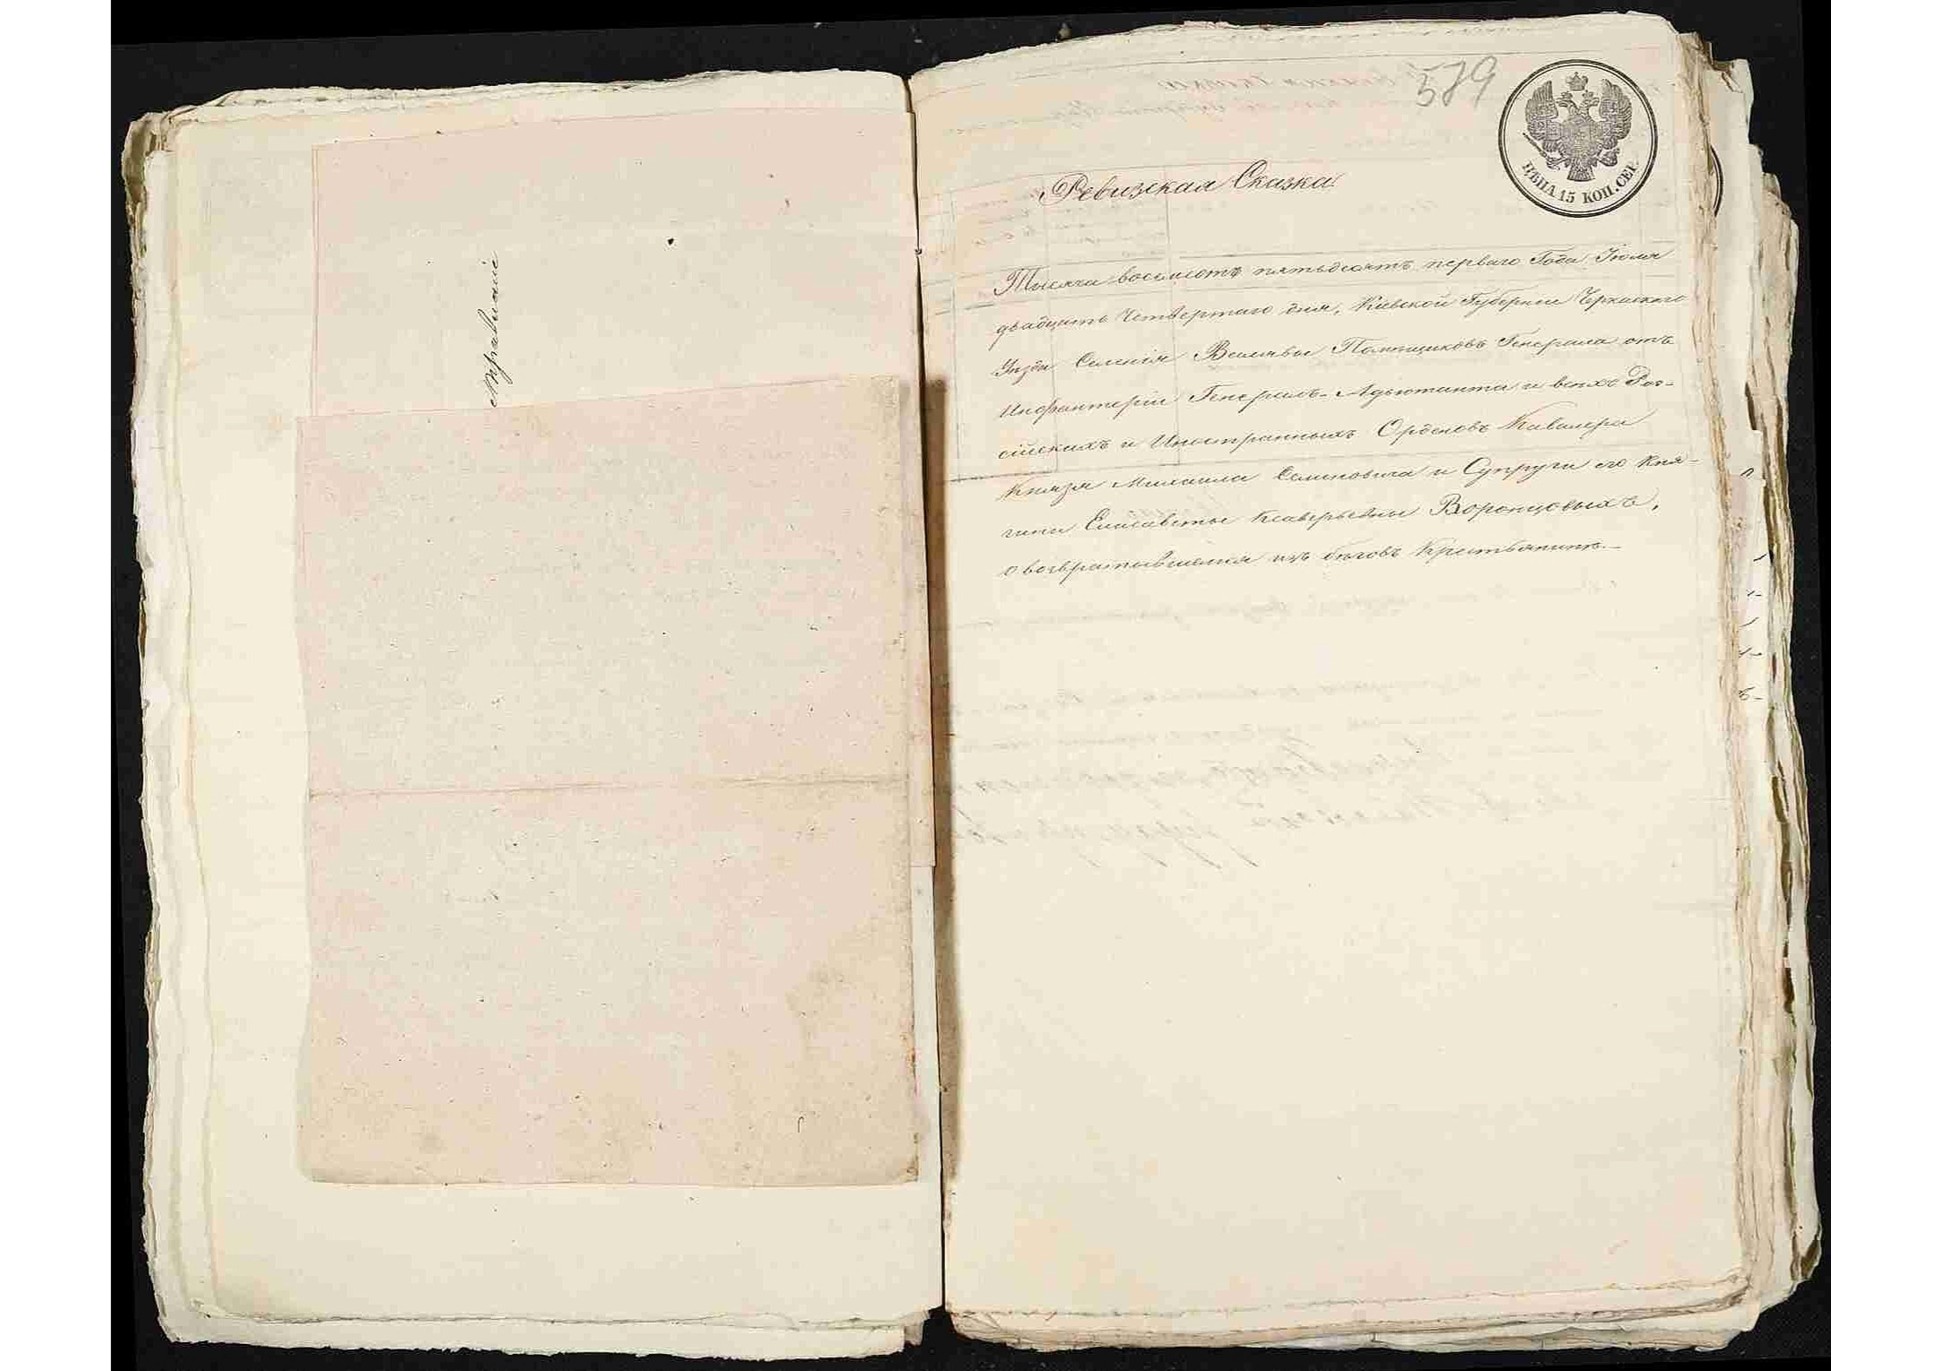 Правленіе
579
ЦѢНА 15 КОП. СЕР.
Ревизская Сказка
Тысяча восемсотъ пятьдесятъ перваго Года Іюля
двадцать Четвертаго дня, Кіевской Губерніи Черкаскаго
Уѣзда Селенія Вязивки Помѣщиковъ Генерала отъ
Инфантеріи Генералъ-Адъютанта и всѣхъ Рос-
сійскихъ и Иностранныхъ Орденовъ Кавалера
Князя Михаила Семеновича и Супруги его Кня-
гини Елисаветы Ксаверьевны Воронцовыхъ,
о возвратившемся изъ бѣговъ Крестьянинѣ.-